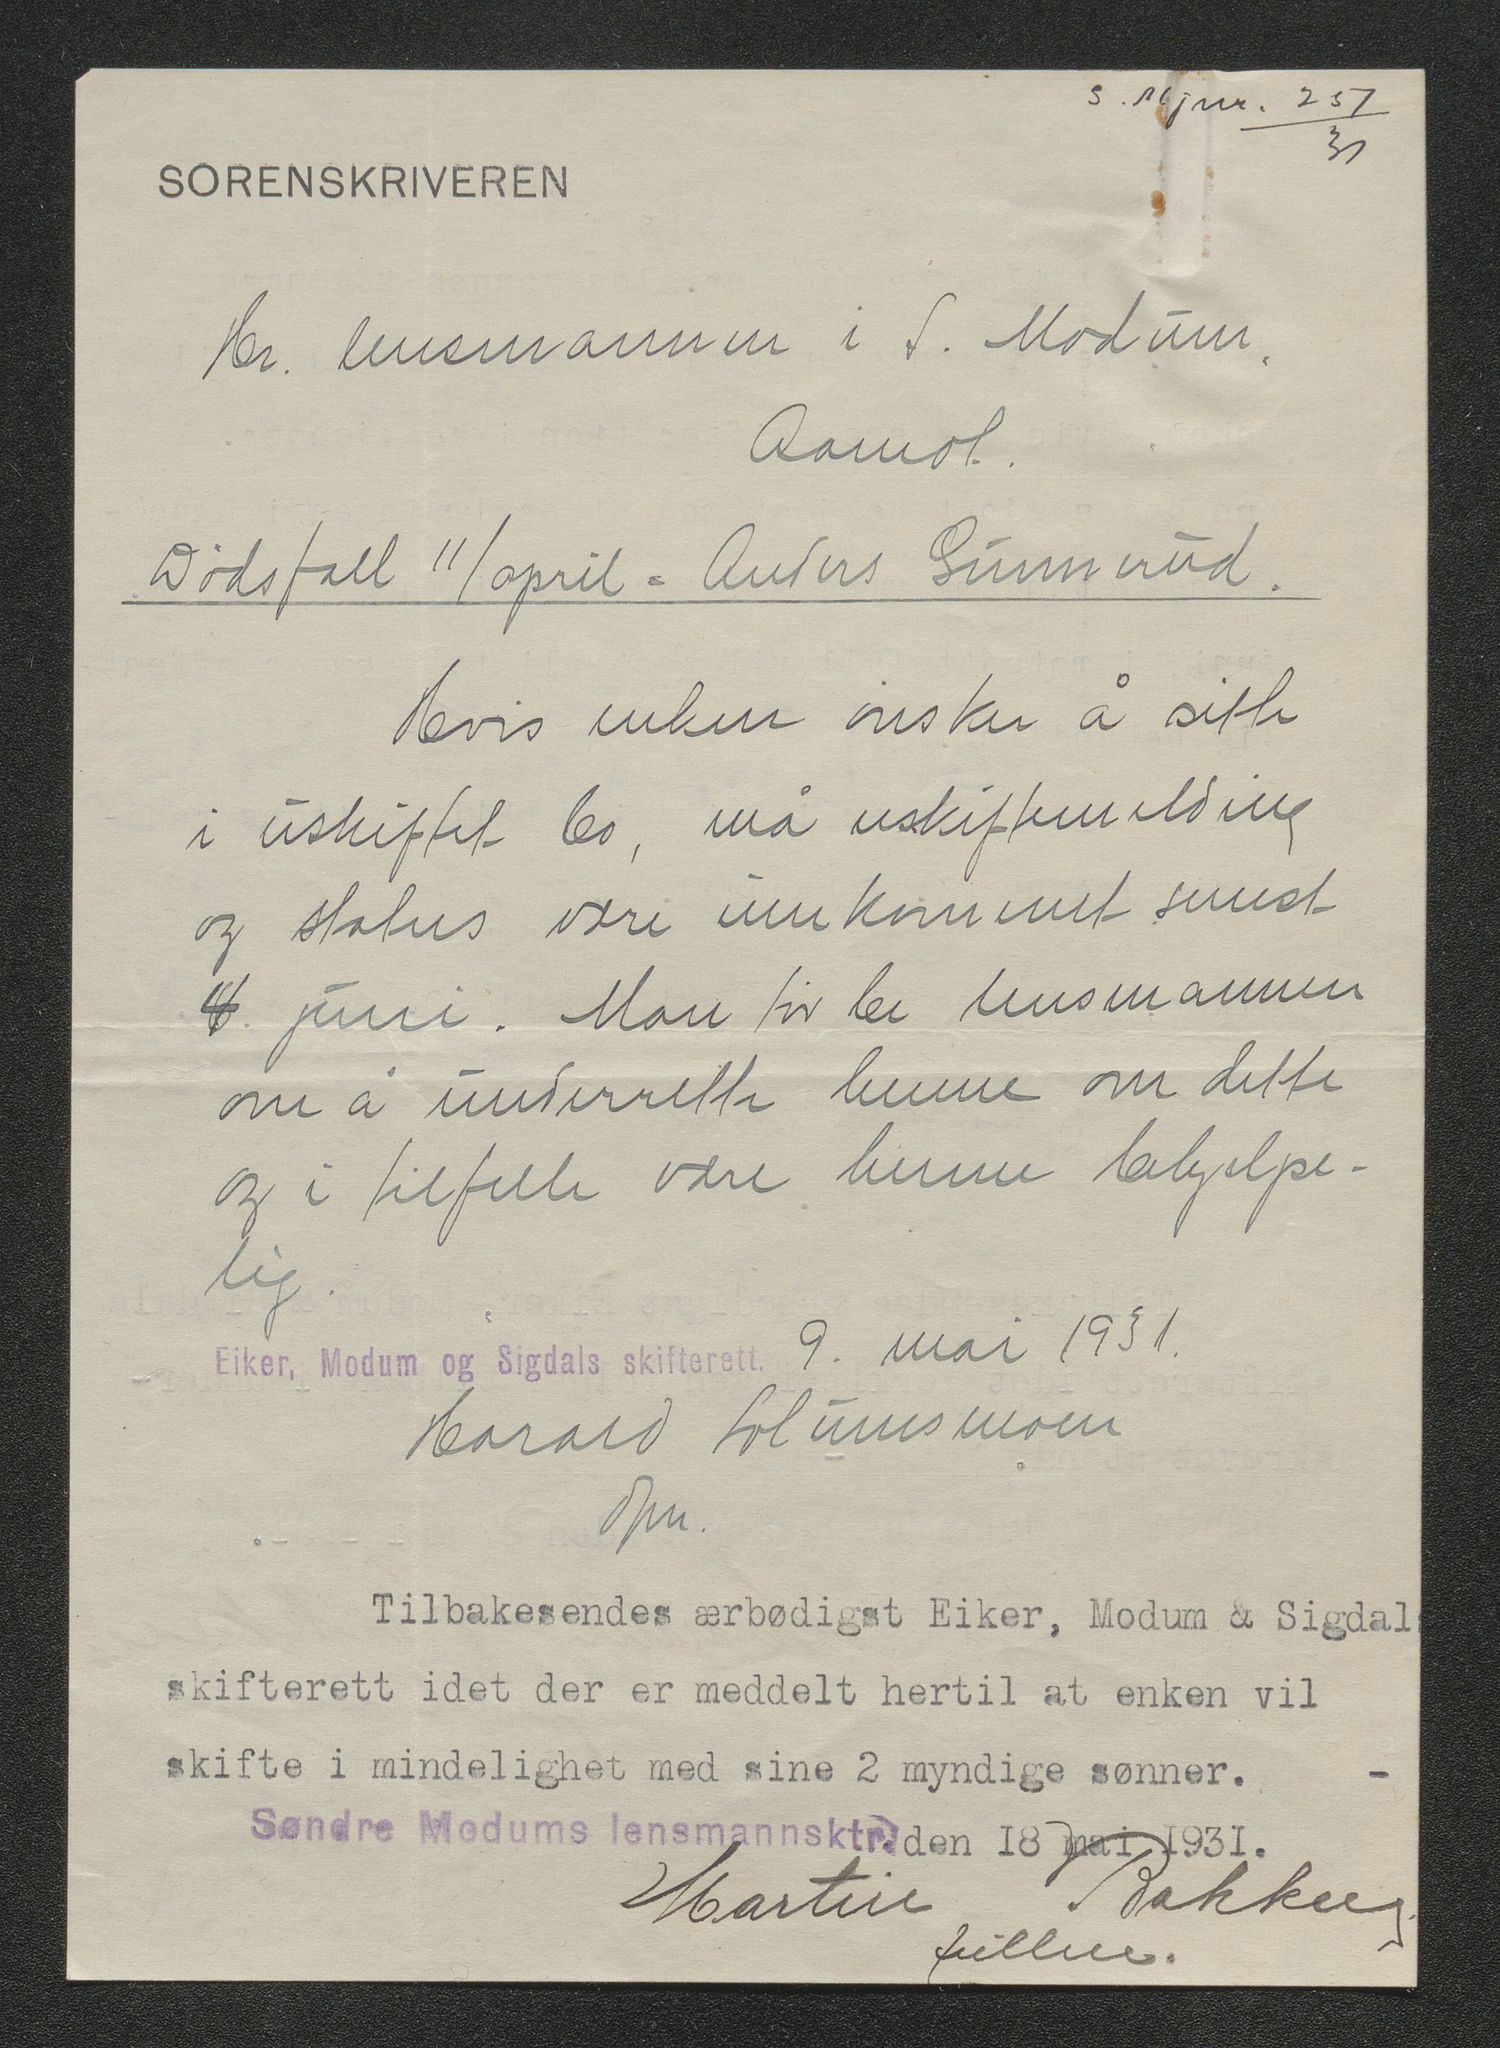 S. M jnr. 257
31
SORENSKRIVEREN
Hr. lensmannen i S. Modum.
Aamot.
Dødsfall 11/april - Anders Gunnerud.
Hvis enken ønsker å sitte
i uskiftet bo, må uskiftemelding
og status være innkommet senest
juni. Man tør be lensmannen
om å underrette henne om dette
og i tilfelle være henne behjelpe-
lig.
Eiker, Modum og Sigdals skifterett. 9. mai 1931.
Harald
Tilbakesendes ærbødigst Eiker, Modum & Sigdals
skifterett idet der er meddelt hertil at enken vil
skifte i mindelighet med sine 2 myndige sønner. -
Søndre Modums lensmannsktr. den 18 mai 1931.
Martin Bakkeng.
fullm.